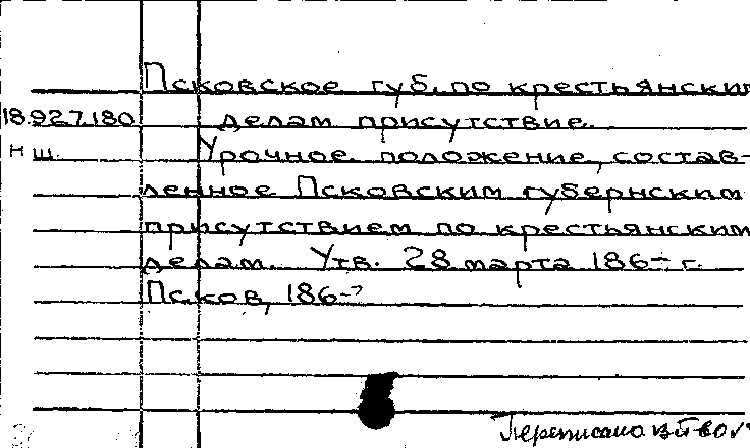 Псковское губ. по крестьянским
18.927.180 делам присутствие.
Н Ш. Урочное положение, состав-
ленное Псковским губернским
присутствием по крестьянским
делам. Утв. 28 марта 186-г.
Псков, 186-?
Переписано